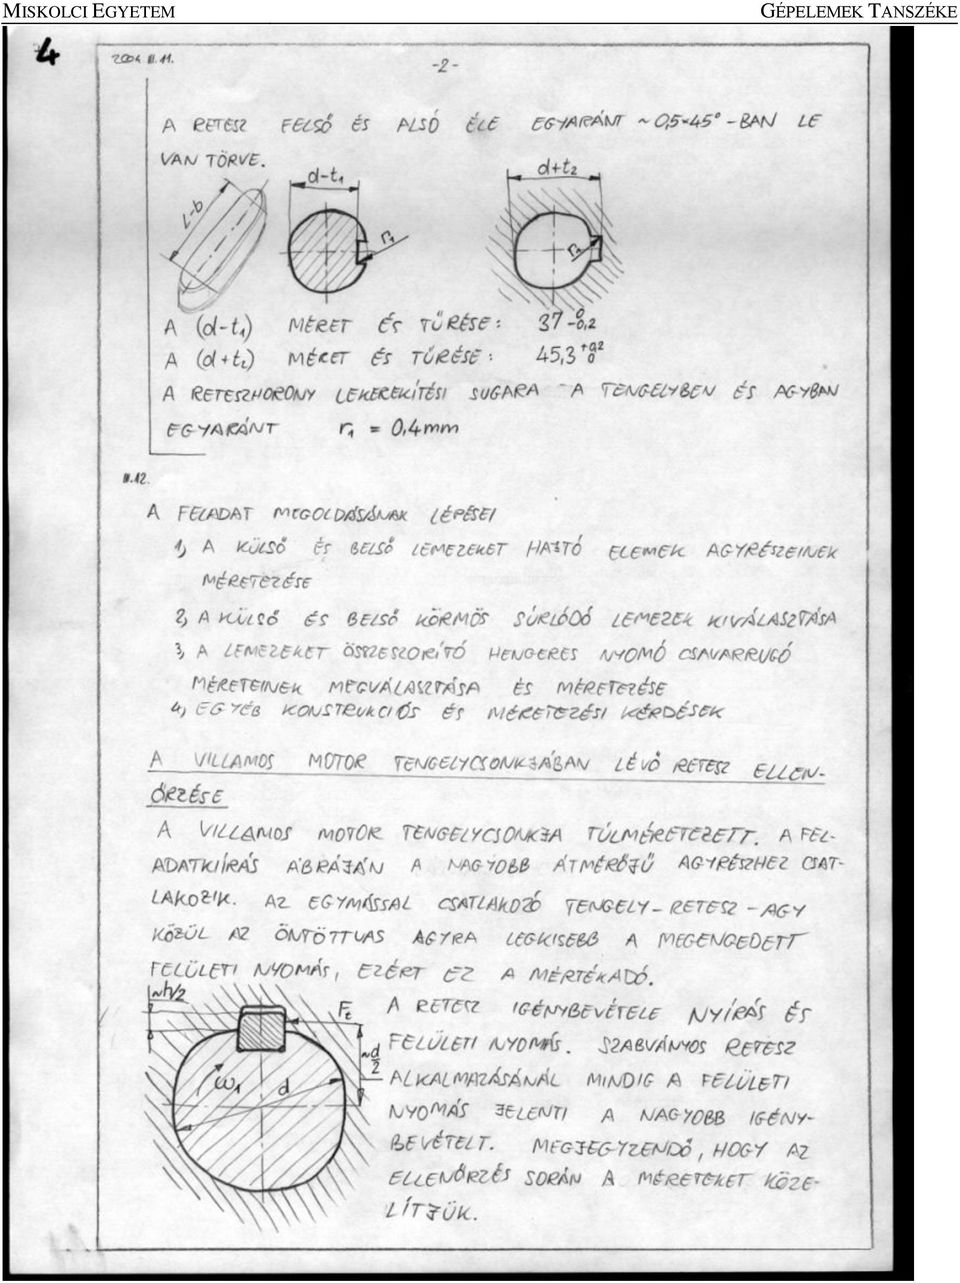 MISKOLCI EGYETEM GÉPELEMEK TANSZÉKE
4 2004 III. 11. -2-
A RETESZ FELSŐ ÉS ALSÓ ÉLE EGYARÁNT ~0,5×45° -BAN LE
VAN TÖRVE.
d-t₁ d+t₂
L-b r₁ r₁
A (d-t₁) MÉRET ÉS TŰRÉSE: 37 -0,2 0
A (d+t₂) MÉRET ÉS TŰRÉSE: 45,3 +0,2 0
A RETESZHORONY LEKEREKÍTÉSI SUGARA A TENGELYBEN ÉS AGYBAN
EGYARÁNT r₁ = 0,4mm
III.12.
A FELADAT MEGOLDÁSÁNAK LÉPÉSEI
1, A KÜLSŐ ÉS BELSŐ LEMEZEKET HAJTÓ ELEMEK AGYRÉSZEINEK
MÉRETEZÉSE
2, A KÜLSŐ ÉS BELSŐ KÖRMÖS SÚRLÓDÓ LEMEZEK KIVÁLASZTÁSA
3, A LEMEZEKET ÖSSZESZORÍTÓ HENGERES NYOMÓ CSAVARRUGÓ
MÉRETEINEK MEGVÁLASZTÁSA ÉS MÉRETEZÉSE
4, EGYÉB KONSTRUKCIÓS ÉS MÉRETEZÉSI KÉRDÉSEK
A VILLAMOS MOTOR TENGELYCSONKJÁBAN LÉVŐ RETESZ ELLEN-
ŐRZÉSE
A VILLAMOS MOTOR TENGELYCSONKJA TÚLMÉRETEZETT. A FEL-
ADATKIÍRÁS ÁBRÁJÁN A NAGYOBB ÁTMÉRŐJŰ AGYRÉSZHEZ CSAT-
LAKOZIK. AZ EGYMÁSSAL CSATLAKOZÓ TENGELY-RETESZ-AGY
KÖZÜL AZ ÖNTÖTTVAS AGYRA LEGKISEBB A MEGENGEDETT
FELÜLETI NYOMÁS, EZÉRT EZ A MÉRTÉKADÓ.
~h/2 Fₜ ~d/2 ω₁ d
A RETESZ IGÉNYBEVÉTELE NYÍRÁS ÉS
FELÜLETI NYOMÁS. SZABVÁNYOS RETESZ
ALKALMAZÁSÁNÁL MINDIG A FELÜLETI
NYOMÁS JELENTI A NAGYOBB IGÉNY-
BEVÉTELT. MEGJEGYZENDŐ, HOGY AZ
ELLENŐRZÉS SORÁN A MÉRETEKET KÖZE-
LÍTJÜK.